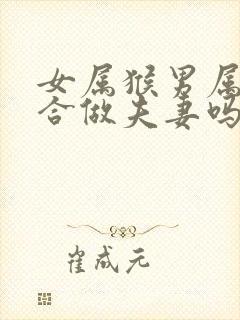 女属猴男属
合做夫妻吗
崔成元